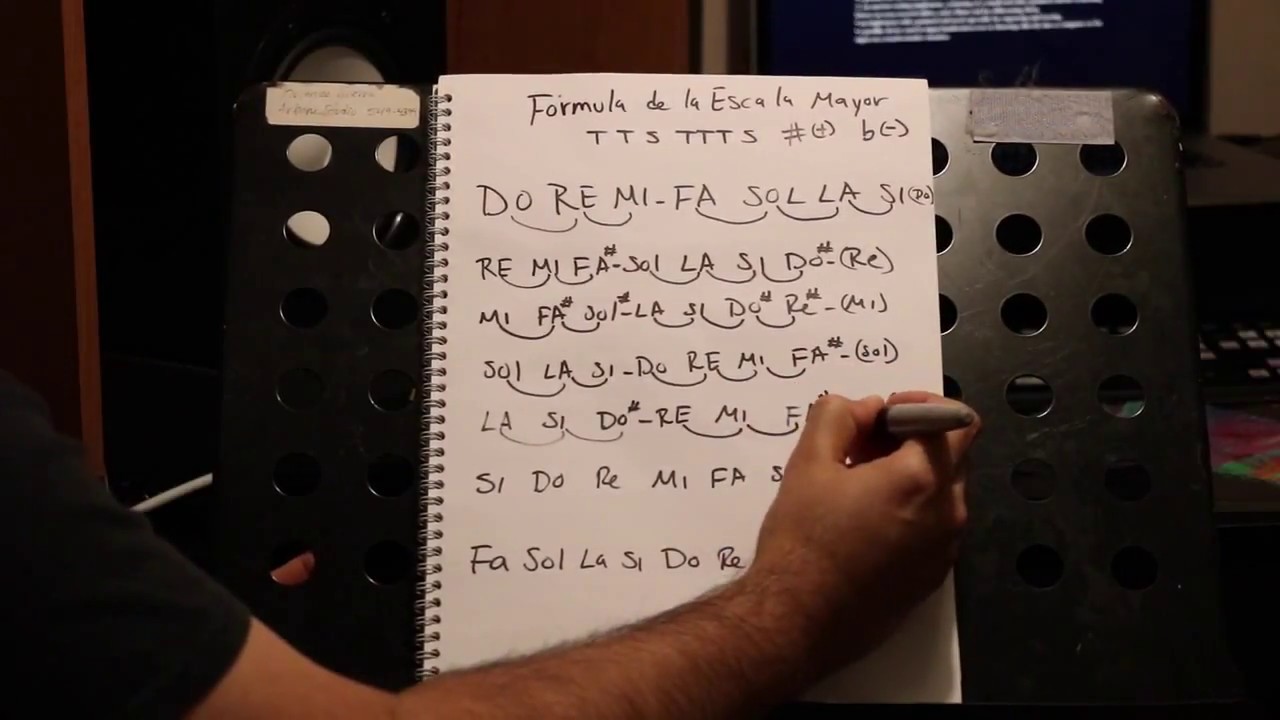 Fórmula de la Escala Mayor
T T S TTT S #(+) b(-)
DO RE MI-FA SOL LA SI(DO)
RE MI FA#-Sol LA SI DO#-(Re)
MI FA# Sol#-LA SI DO# Re#-(MI)
SOl LA SI-Do RE MI FA#-(Sol)
LA SI DO#-RE MI
SI DO Re MI FA
Fa Sol La Si Do Re